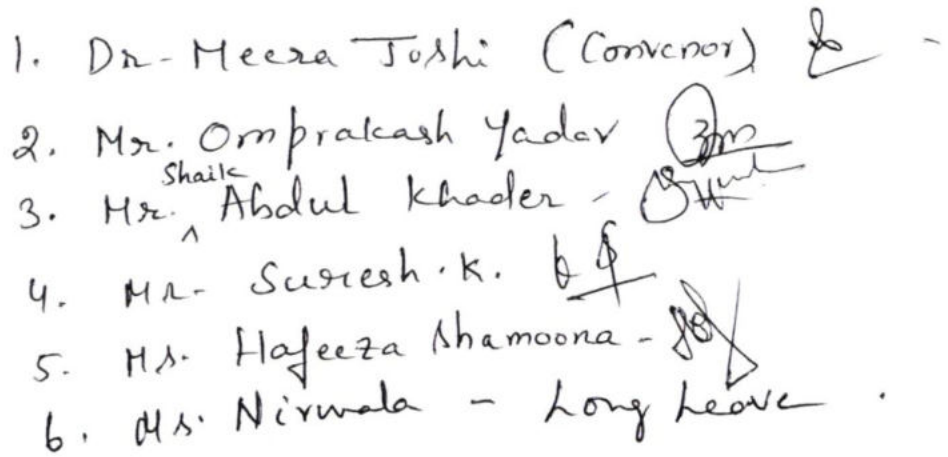 1. Dr. Meera Joshi (Convenor)
2. Mr. Omprakash Yadav
3. Mr. Shaik Abdul Khader -
4. Mr. Suresh. K.
5. Ms. Hafeeza Shamoona -
6. Ms. Nirmala - Long Leave.